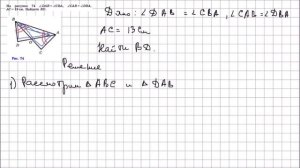 На рисунке 74 ∠DAB=∠CBA, ∠CAB=∠DBA,
AC = 13 см. Найдите BD.
Рис. 74
Дано: ∠DAB = ∠CBA, ∠CAB=∠DBA
AC = 13 см
Найти BD.
Решение
1) Рассмотрим △ABC и △DAB